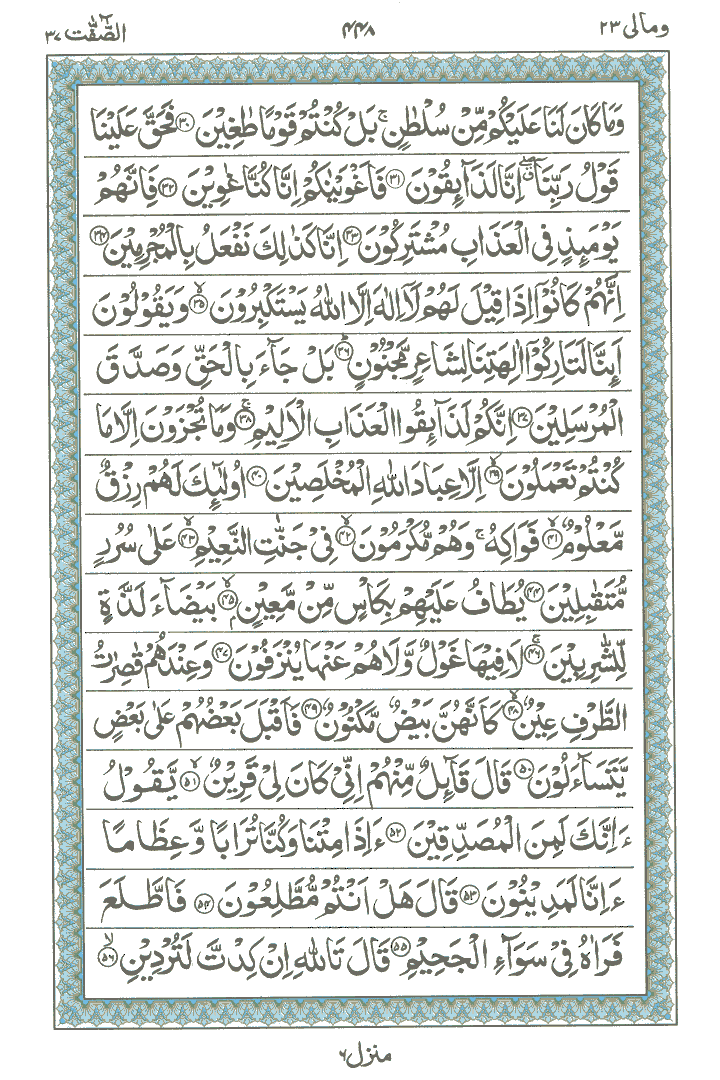 ومالی ۲۳
۴۴۸
الصّٰفّٰت ۳۷
وَمَا كَانَ لَنَا عَلَيْكُمْ مِّنْ سُلْطٰنٍ ۚ بَلْ كُنْتُمْ قَوْمًا طٰغِيْنَ ۝۳۰ فَحَقَّ عَلَيْنَا
قَوْلُ رَبِّنَاۤ ۖۗ اِنَّا لَذَآىِٕقُوْنَ ۝۳۱ فَاَغْوَيْنٰكُمْ اِنَّا كُنَّا غٰوِيْنَ ۝۳۲ فَاِنَّهُمْ
يَوْمَىِٕذٍ فِى الْعَذَابِ مُشْتَرِكُوْنَ ۝۳۳ اِنَّا كَذٰلِكَ نَفْعَلُ بِالْمُجْرِمِيْنَ ۝۳۴
اِنَّهُمْ كَانُوْۤا اِذَا قِيْلَ لَهُمْ لَاۤ اِلٰهَ اِلَّا اللّٰهُ يَسْتَكْبِرُوْنَ ۝۳۵ۙ وَيَقُوْلُوْنَ
اَىِٕنَّا لَتَارِكُوْۤا اٰلِهَتِنَا لِشَاعِرٍ مَّجْنُوْنٍ ۝۳۶ؕ بَلْ جَآءَ بِالْحَقِّ وَصَدَّقَ
الْمُرْسَلِيْنَ ۝۳۷ اِنَّكُمْ لَذَآىِٕقُوا الْعَذَابِ الْاَلِيْمِ ۝۳۸ۚ وَمَا تُجْزَوْنَ اِلَّا مَا
كُنْتُمْ تَعْمَلُوْنَ ۝۳۹ۙ اِلَّا عِبَادَ اللّٰهِ الْمُخْلَصِيْنَ ۝۴۰ اُولٰٓىِٕكَ لَهُمْ رِزْقٌ
مَّعْلُوْمٌ ۝۴۱ۙ فَوَاكِهُ ۚ وَهُمْ مُّكْرَمُوْنَ ۝۴۲ۙ فِيْ جَنّٰتِ النَّعِيْمِ ۝۴۳ۙ عَلٰى سُرُرٍ
مُّتَقٰبِلِيْنَ ۝۴۴ يُطَافُ عَلَيْهِمْ بِكَاْسٍ مِّنْ مَّعِيْنٍۭ ۝۴۵ۙ بَيْضَآءَ لَذَّةٍ
لِّلشّٰرِبِيْنَ ۝۴۶ۚ لَا فِيْهَا غَوْلٌ وَّلَا هُمْ عَنْهَا يُنْزَفُوْنَ ۝۴۷ وَعِنْدَهُمْ قٰصِرٰتُ
الطَّرْفِ عِيْنٌ ۝۴۸ۙ كَاَنَّهُنَّ بَيْضٌ مَّكْنُوْنٌ ۝۴۹ فَاَقْبَلَ بَعْضُهُمْ عَلٰى بَعْضٍ
يَّتَسَآءَلُوْنَ ۝۵۰ قَالَ قَآىِٕلٌ مِّنْهُمْ اِنِّيْ كَانَ لِيْ قَرِيْنٌ ۝۵۱ۙ يَّقُوْلُ
ءَاِنَّكَ لَمِنَ الْمُصَدِّقِيْنَ ۝۵۲ ءَاِذَا مِتْنَا وَكُنَّا تُرَابًا وَّعِظَامًا
ءَاِنَّا لَمَدِيْنُوْنَ ۝۵۳ قَالَ هَلْ اَنْتُمْ مُّطَّلِعُوْنَ ۝۵۴ فَاطَّلَعَ
فَرَاٰهُ فِيْ سَوَآءِ الْجَحِيْمِ ۝۵۵ قَالَ تَاللّٰهِ اِنْ كِدْتَّ لَتُرْدِيْنِ ۝۵۶ۙ
منزل ۶